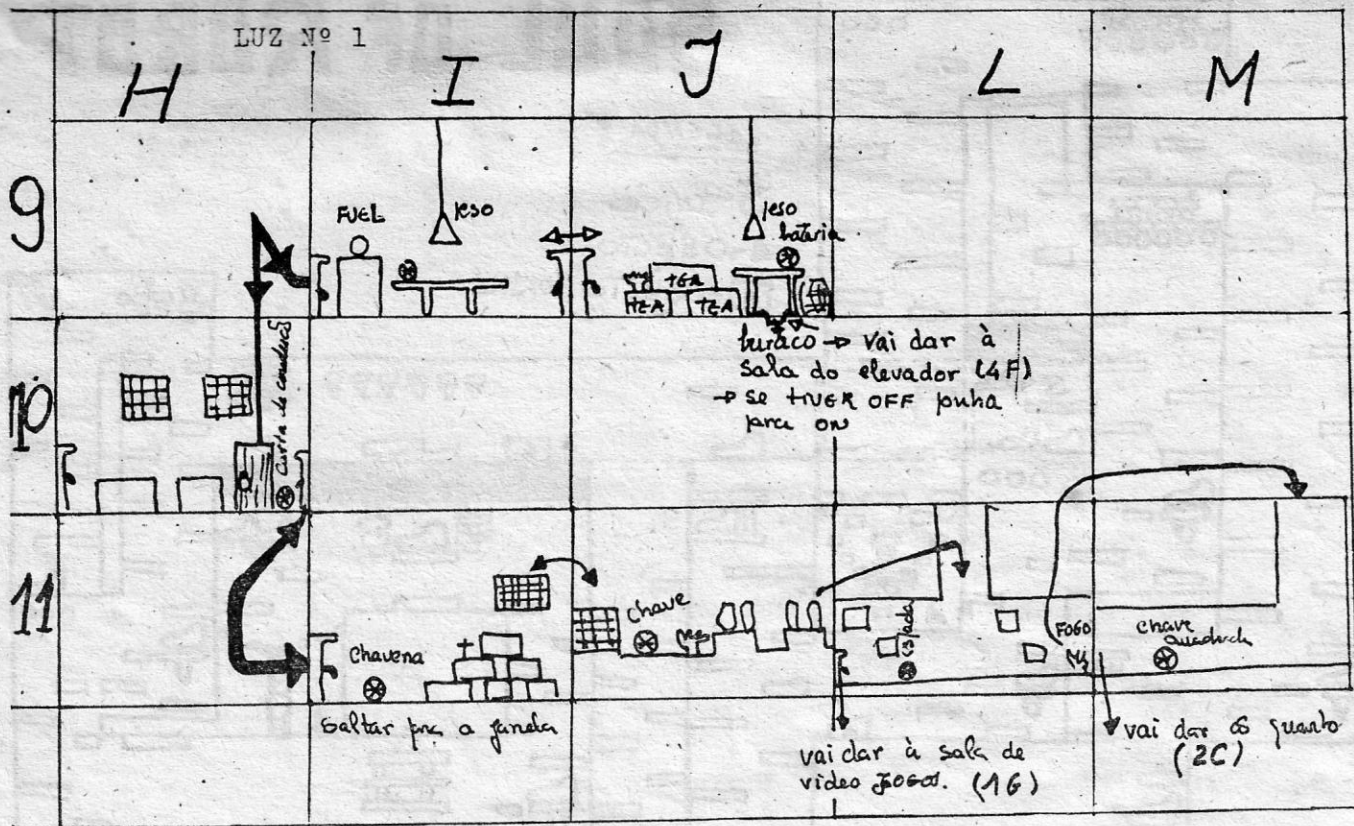 LUZ Nº 1
H I J L M
9
FUEL
peso
peso
bateria
TEA
TEA TEA
buraco → vai dar à
sala do elevador (4F)
→ se tiver OFF punha
pra on
10
Carta de conduçã
11
Chavena
saltar pra a janela
chave
espada
FOGO
chave
quadrada
vai dar à sala de
video JOGOS. (1G)
vai dar ós quarto
(2C)